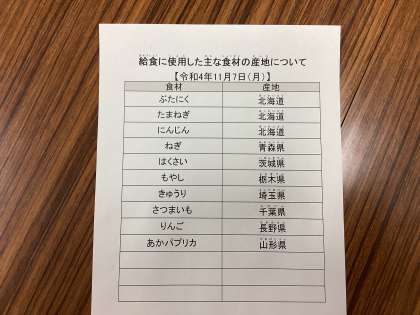 給食に使用した主な食材の産地について
【令和4年11月7日(月)】
食材 産地
ぶたにく 北海道
たまねぎ 北海道
にんじん 北海道
ねぎ 青森県
はくさい 茨城県
もやし 栃木県
きゅうり 埼玉県
さつまいも 千葉県
りんご 長野県
あかパプリカ 山形県